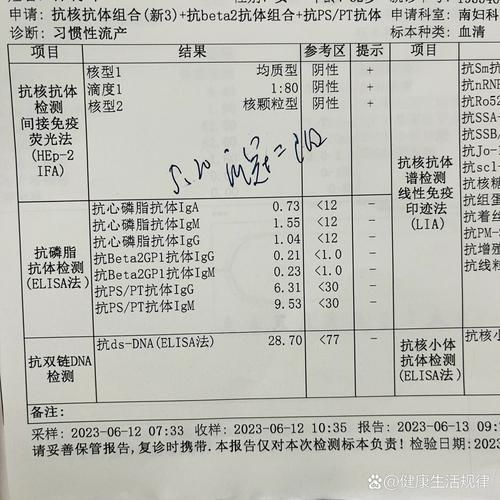 申请: 抗核抗体组合(新3)+抗beta2抗体组合+抗PS/PT抗体 申请科室: 南妇科
诊断: 习惯性流产 标本种类: 血清
项目 结果 参考区 提示 项目
抗核抗体检测间接免疫荧光法(HEp-2 IFA)
核型1 均质型 阴性 +
滴度1 1:80 阴性 +
核型2 核颗粒型 阴性 +
抗磷脂抗体检测(ELISA法)
抗心磷脂抗体IgA 0.73 <12 -
抗心磷脂抗体IgM 1.55 <12 -
抗心磷脂抗体IgG 1.04 <12 -
抗Beta2GP1抗体IgG 0.21 <1.0 -
抗Beta2GP1抗体IgM 0.23 <1.0 -
抗PS/PT抗体IgG 6.31 <30 -
抗PS/PT抗体IgM 9.53 <30 -
抗双链DNA检测
抗ds-DNA(ELISA法) 28.70 <77 -
抗核抗体谱检测线性免疫印迹法(LIA)
抗Sm抗
抗nRNP
抗Ro52
抗SSA-
抗SSB
抗Jo-1
抗scl-
抗核糖
抗组蛋
抗着丝
抗PM-S
抗增殖
抗线粒
抗核小体抗体检测(ELISA法)
抗核小体
备注:
采样: 2023-06-12 07:33 收样: 2023-06-12 10:35 报告: 2023-06-13 09:
请妥善保管报告,复诊时携带.本报告仅对本次检测标本负责! 检验日期: 2023
@健康生活规律